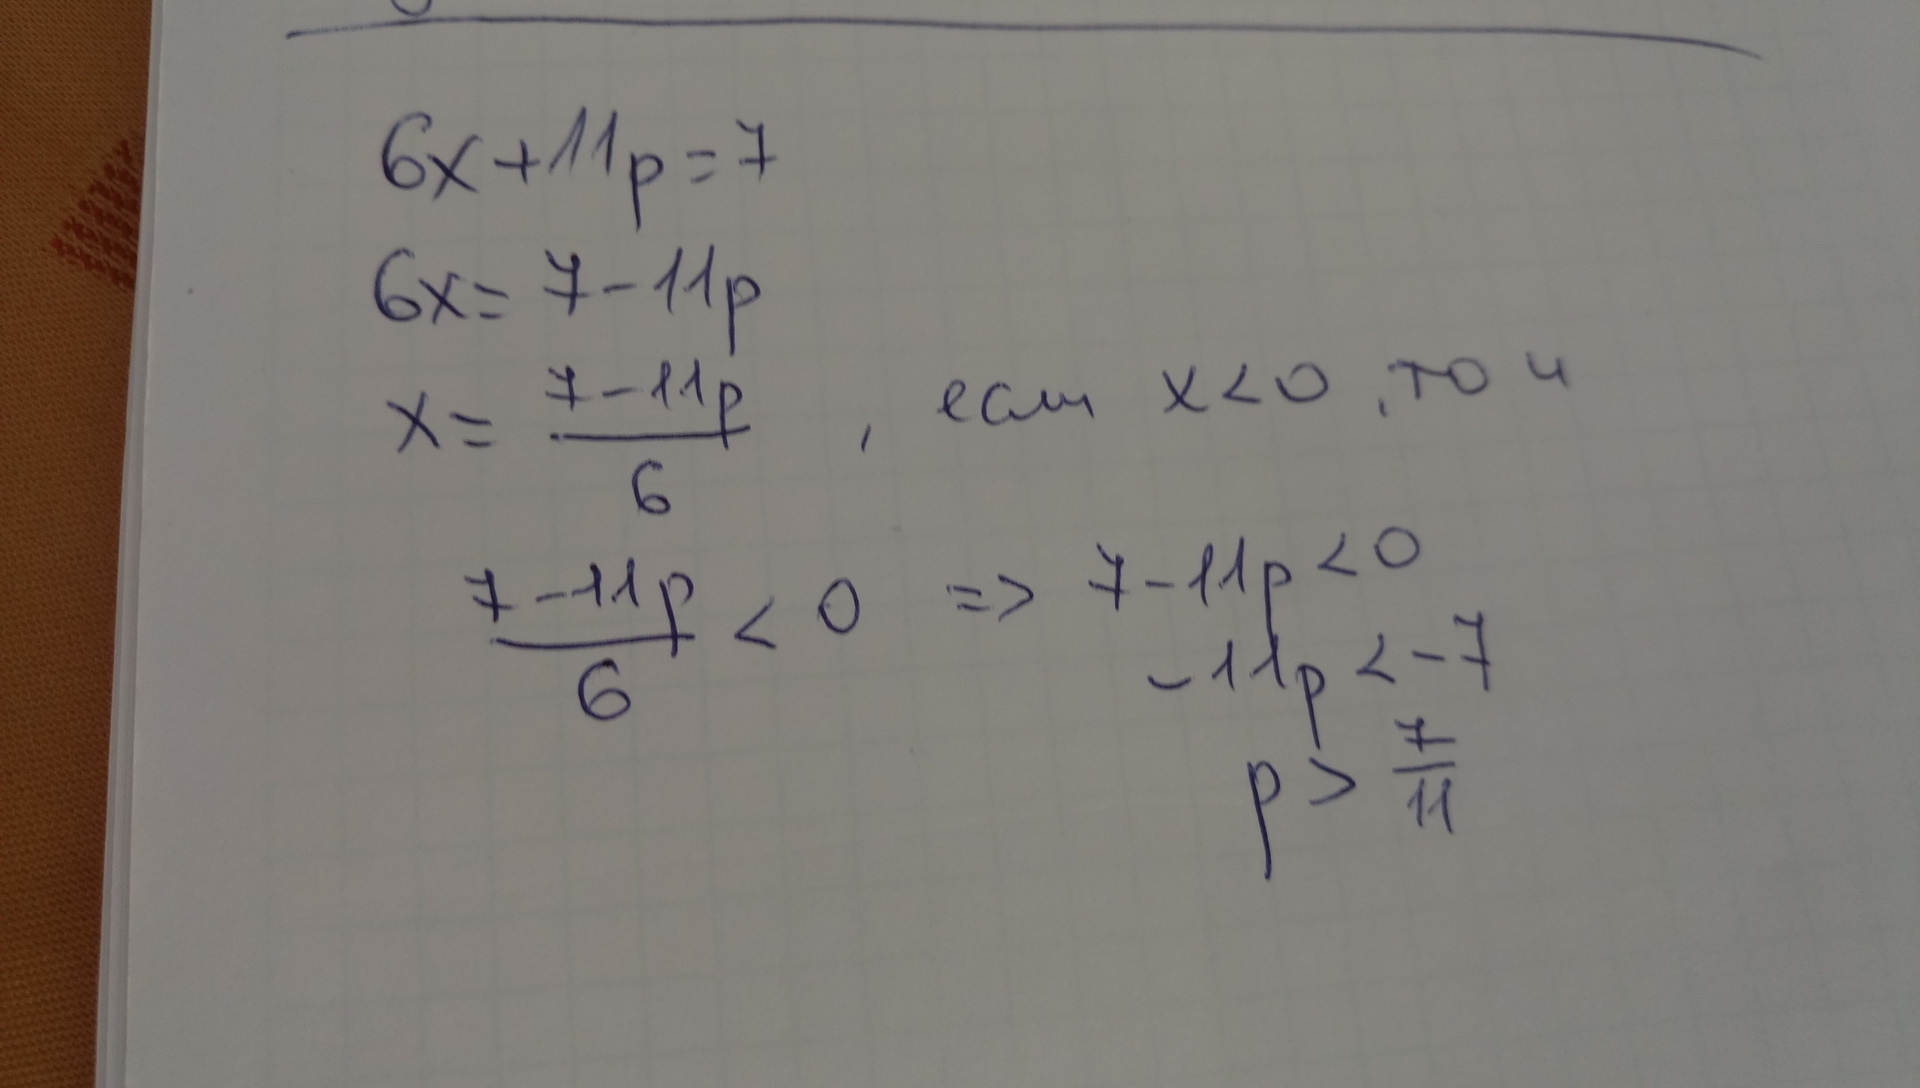 6x+11p=7
6x=7-11p
x=\frac{7-11p}{6}, если x<0, то и
\frac{7-11p}{6}<0 => 7-11p<0
-11p<-7
p>\frac{7}{11}